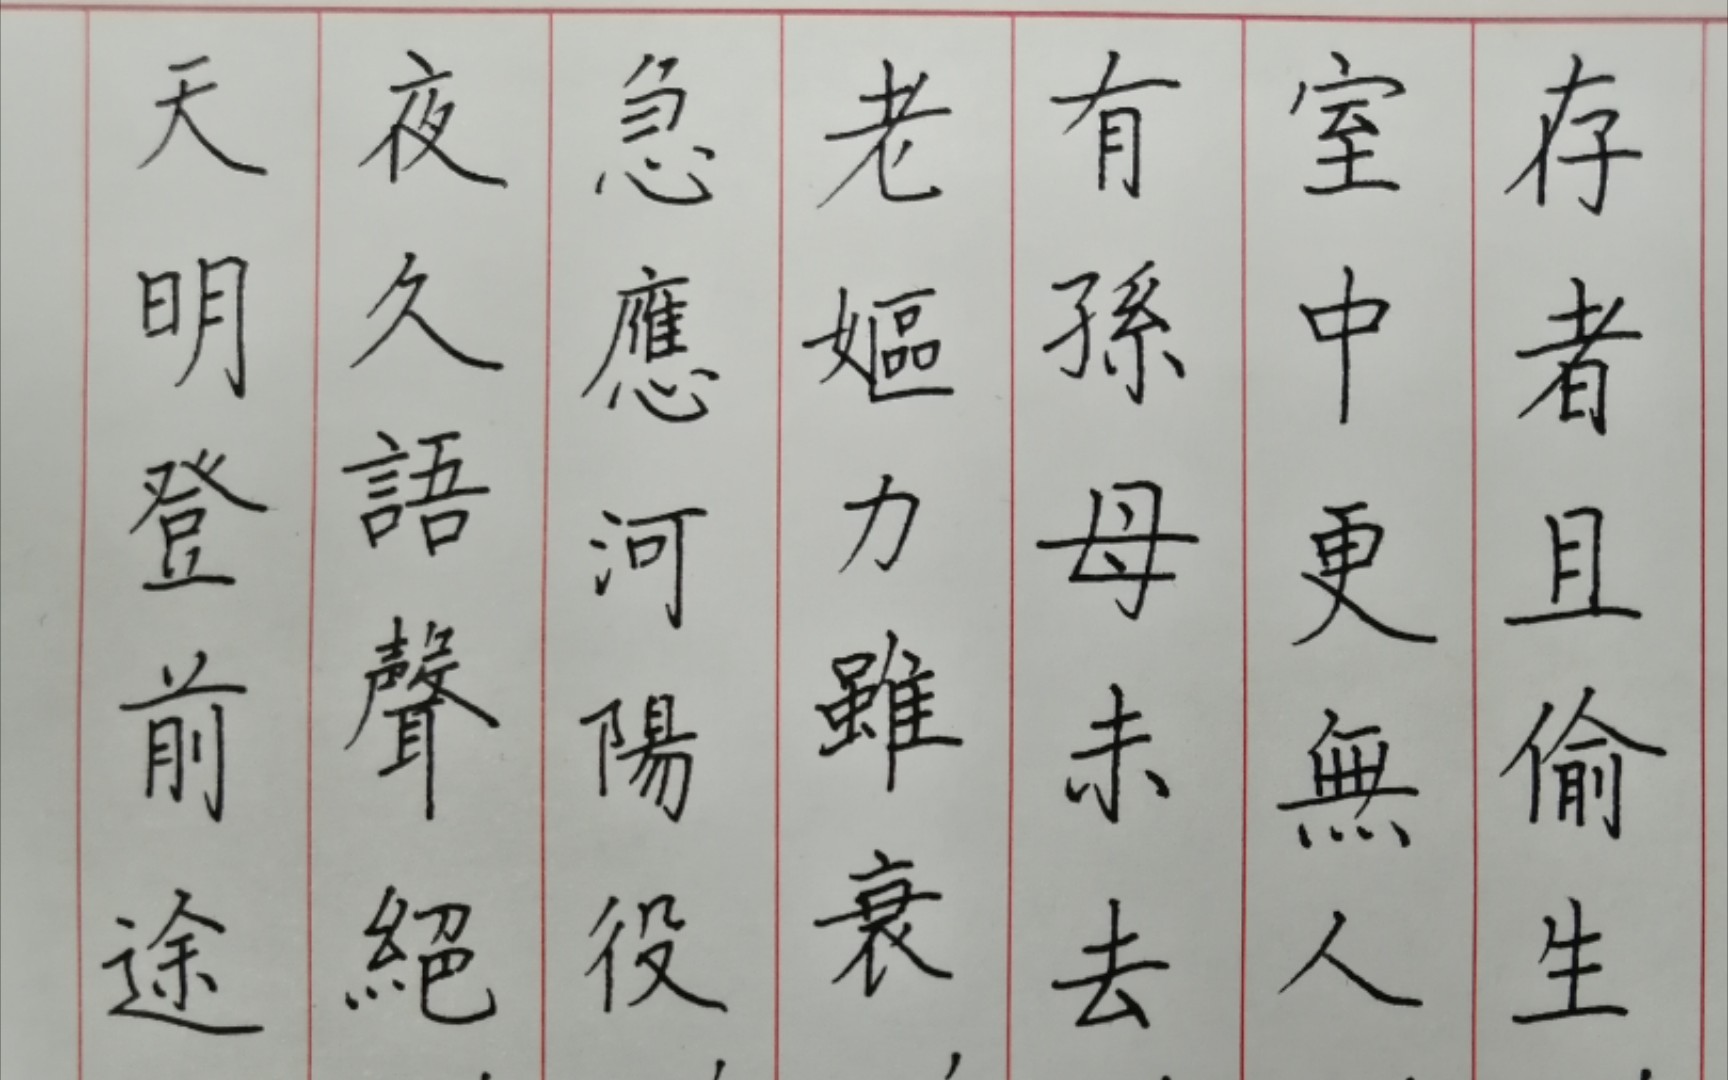 存者且偷生
室中更無人
有孫母未去
老嫗力雖衰
急應河陽役
夜久語聲絕
天明登前途